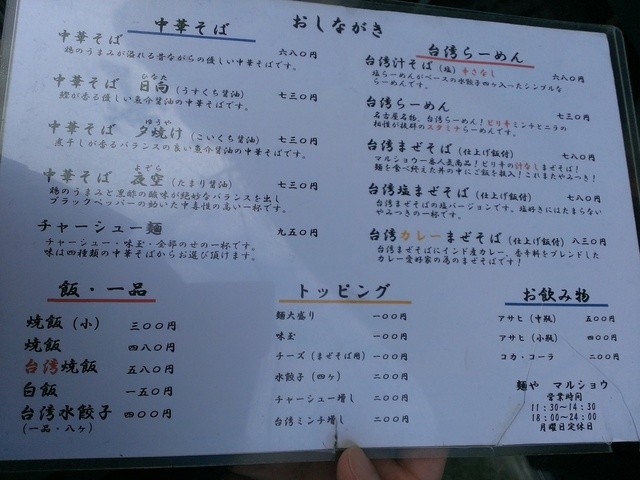 おしながき
中華そば
中華そば 六八〇円
鶏のうまみが溢れる昔ながらの優しい中華そばです。
中華そば 日向 (うすくち醤油) 七三〇円
ひなた
鰹が香る優しい魚介醤油の中華そばです。
中華そば 夕焼け (こいくち醤油) 七三〇円
ゆうや
煮干しが香るバランスの良い魚介醤油の中華そばです。
中華そば 夜空 (たまり醤油) 七三〇円
よぞら
鶏のうまみと黒酢の酸味が絶妙なバランスを出し
ブラックペッパーの効いた中毒性の高い一杯です。
チャーシュー麺 九五〇円
チャーシュー・味玉・全部のせの一杯です。
味は四種類の中華そばからお選び頂けます。
台湾らーめん
台湾汁そば (塩) 辛さなし 六八〇円
塩らーめんがベースの水餃子四ヶ入ったシンプルな
らーめんです。
台湾らーめん 七三〇円
名古屋名物、台湾らーめん!ピリ辛ミンチとニラの
相性が抜群のスタミナらーめんです。
台湾まぜそば (仕上げ飯付) 七八〇円
マルショウ一番人気商品!ピリ辛の汁なしまぜそば!
麺を食べ終えた丼の中にご飯を投入!これまたやみつき!
台湾塩まぜそば (仕上げ飯付) 七八〇円
台湾まぜそばの塩バージョンです。塩好きにはたまらない
やみつきの一杯です。
台湾カレーまぜそば (仕上げ飯付) 八三〇円
台湾まぜそばにインド産カレー、香辛料をブレンドした
カレー愛好家の為のまぜそばです!
飯・一品
焼飯 (小) 三〇〇円
焼飯 四八〇円
台湾焼飯 五八〇円
白飯 一五〇円
台湾水餃子 四〇〇円
(一品・八ヶ)
トッピング
麺大盛り 一〇〇円
味玉 一〇〇円
チーズ (まぜそば用) 一〇〇円
水餃子 (四ヶ) 二〇〇円
チャーシュー増し 二〇〇円
台湾ミンチ増し 二〇〇円
お飲み物
アサヒ (中瓶) 五〇〇円
アサヒ (小瓶) 四〇〇円
コカ・コーラ 二〇〇円
麺や マルショウ
営業時間
11:30~14:30
18:00~24:00
月曜日定休日